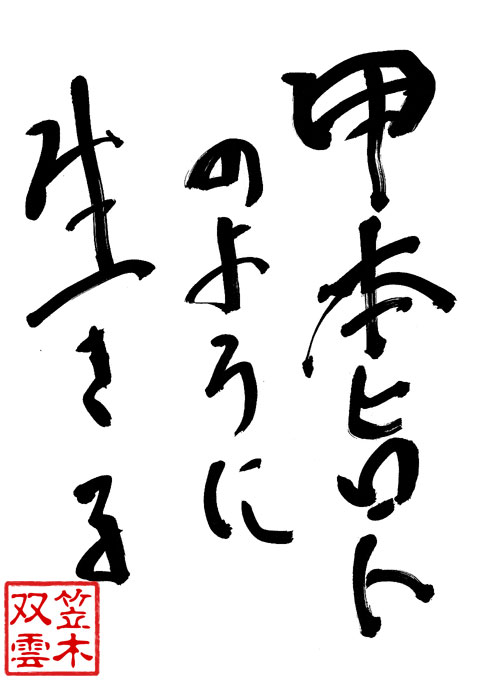 甲本ヒロト
のように
生きる
笠木
双雲